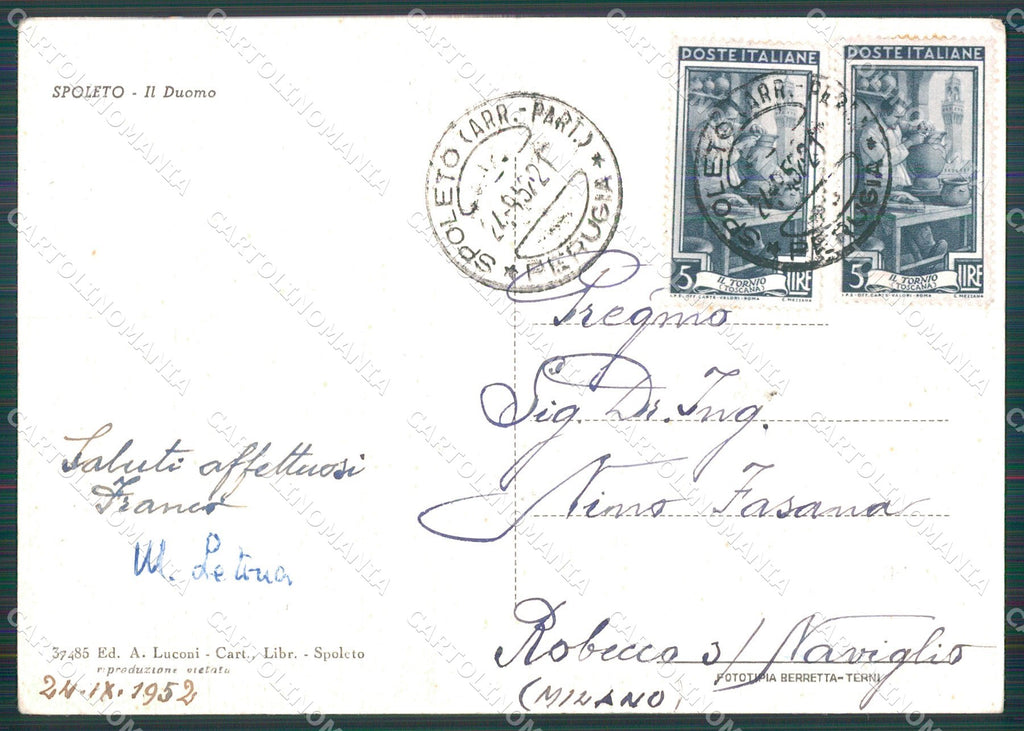 SPOLETO - Il Duomo
SPOLETO (ARR.-PART.)
PERUGIA
POSTE ITALIANE
5 LIRE
IL TORNIO
(TOSCANA)
I.P.S. OFF. CARTE-VALORI-ROMA C. MEZZANA
POSTE ITALIANE
5 LIRE
IL TORNIO
(TOSCANA)
I.P.S. OFF. CARTE-VALORI-ROMA C. MEZZANA
SPOLETO (ARR.-PART.)
PERUGIA
Pregmo
Sig. Dr. Ing.
Nino Fasana
Robecco s/ Naviglio
(MILANO)
Saluti affettuosi
Franco
37485 Ed. A. Luconi - Cart., Libr. - Spoleto
riproduzione vietata
24.IX.1952
FOTOTIPIA BERRETTA-TERNI
CARTOLINOMANIA